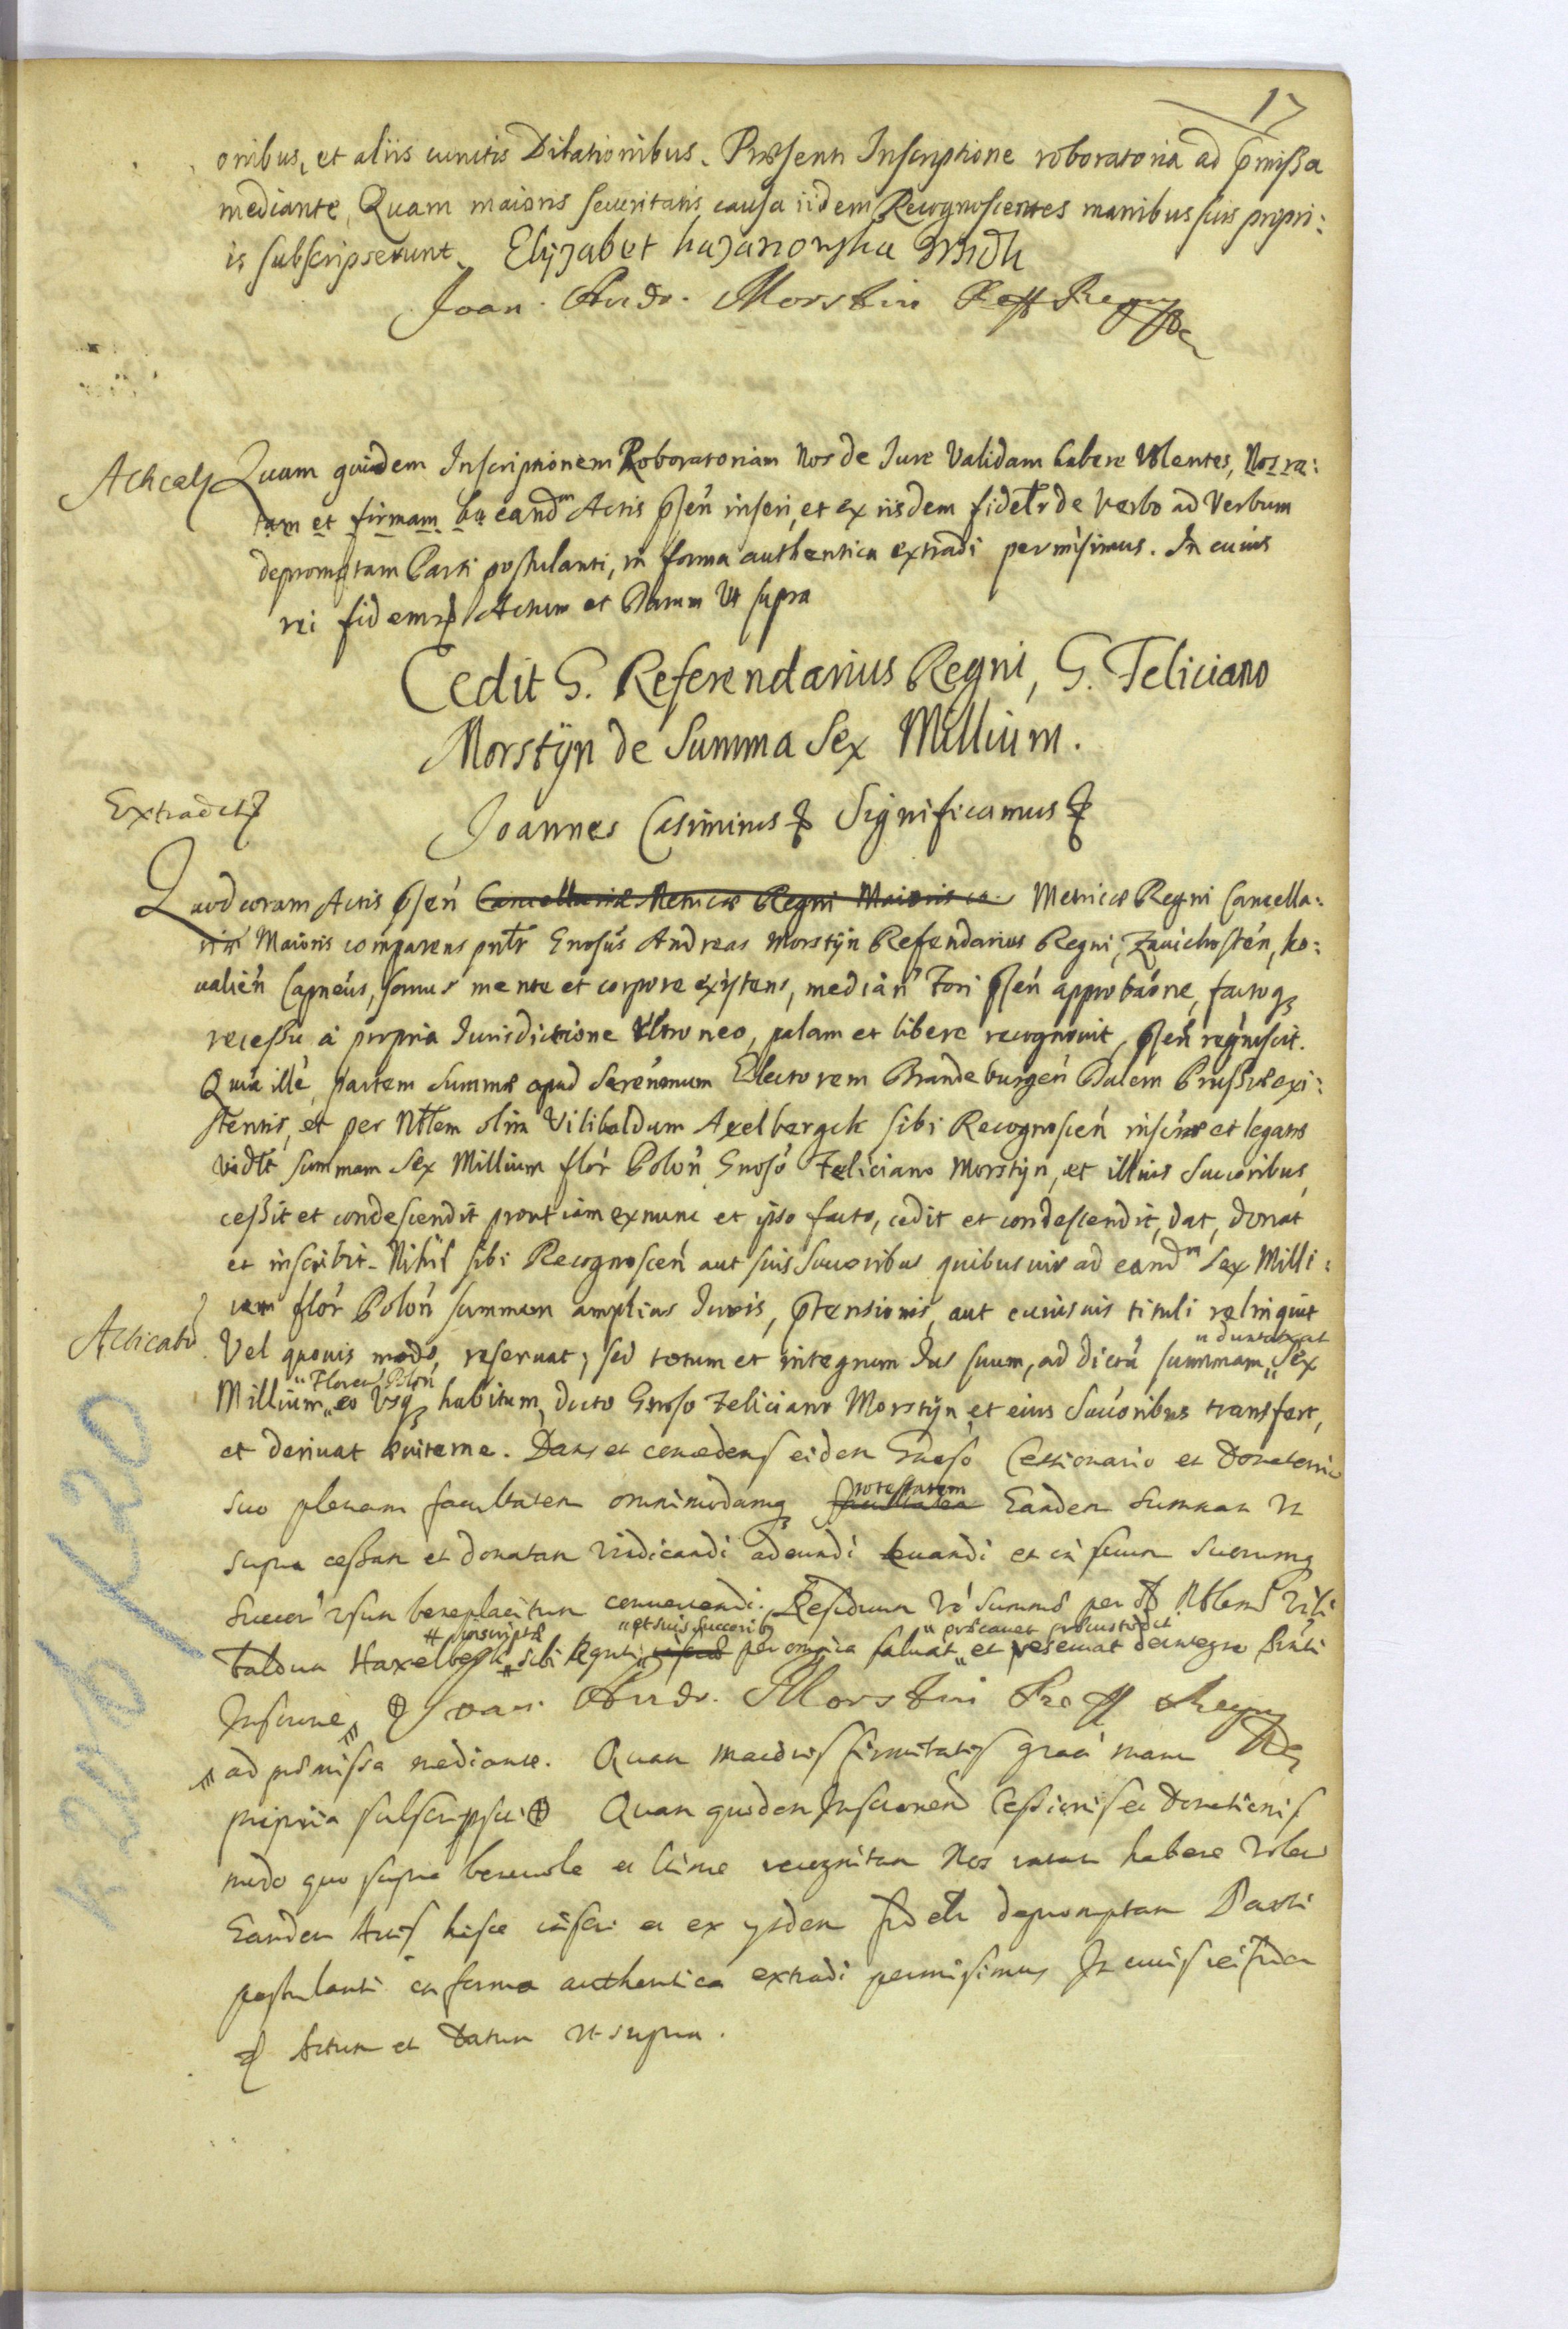 17
onibus, et aliis cunctis Ditationibus. Præsenti Inscriptione roboratoria ad p̄missa
mediante, Quam maioris securitatis causa iidem Recognoscentes manibus suis propri:
is subscripserunt. Elijzabet kazanowska
Joan. Andr. Morstin Reff Regni
Quam quidem Inscriptionem Roboratoriam Nos de Jure Validam habere Volentes, Nos ra:
tam et firmam eandm Actis p̄sen̄ inseri, et ex iisdem fidelr de Verbo ad Verbum
depromptam Parti postulanti, in forma authentica extradi permisimus. In cuius
rei fidem Actum et Datum Ut supra
Cedit G. Referendarius Regni, G. Feliciano
Morstÿn de Summa Sex Millium.
Extradit
Joannes Casimirus Significamus
Quod coram Actis p̄sen̄ Cancellariæ Metricæ Regni Maioris Metricæ Regni Cancella:
riæ Maioris comparens Gnosus Andreas Morstÿn Refendarius Regni, Zavichosten, ko:
valien Capneus, sanus mente et corpore existens, median Fori p̄sen̄ approbaone, factoq
recessu a propria Jurisdictione Ultroneo, palam et libere recognovit, p̄sen̄ regnoscit.
Quia ille, partem Summæ apud Serenmum Electorem Brandeburgen Ducem Prussiæ exi:
stentis, et per Nblem olim Vilibaldum Axelbergck sibi Recognoscen inscriptæ et legatæ
videlt summam Sex Millium flor Polon Gnoso Feliciano Morstijn, et illius Succoribus,
cessit et condescendit prout iam exnunc et ipso facto, cedit et condescendit, dat, donat
et inscribit. Nihil sibi Recognoscen aut suis Succoribus quibusvis ad eandm Sex Milli:
um flor Polon summam amplius Juris, p̄tensionis, aut cuiusvis tituli relinquit
Acticatu
Vel quovis modo, reservat; sed totum et integrum Jus suum, ad dictā summam „duntaxat Sex
Millium „Floren Polon eo Usq habitum, dicto Gnoso Feliciano Morstijn et eius Sucoribus transfert,
et derivat æviterne. Dans et concedens eidem Gnoso Cessionario et Donatario
suo plenam facultatem omnimodamq facultatem potestatem Eandem Summam ut
supra cessam et donatam vindicandi adeundi levandi et in suum suorumq
Succor usum beneplacitum convertendi. Residuum vo Summæ per Nblem Vili
baldum Haxelbergk inscriptæ sibi Regnti „et suis Succorib per omnia salvat „præcavet præcustodit et reservat deintegro Prnti
Inscrne Joan. Andr. Morstin Reff Regni
ad præmissa mediante. Quam maioris firmitatis graa manu
propria subscripsit Quam quidem Inscrionem Cessionis et Donationis
modo quo supra benevole et libere recognitam Nos ratam habere volen
Eandem Actis hisce inseri et ex ijsdem fidelr depromptam Parti
postulanti in forma authentica extradi permisimus In cuius rei fidem
Actum et Datum ut supra.